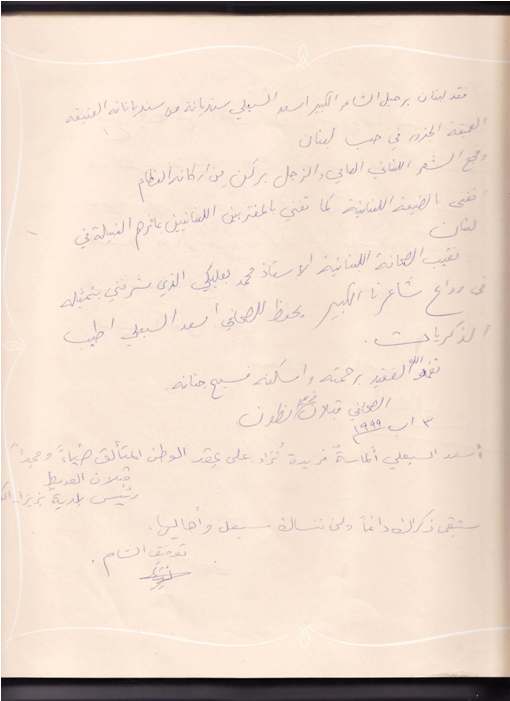 فقد لبنان برحيل الشاعر الكبير اسعد السبعلي سنديانة من سندياناته العتيقة
العميقة الجذور في حب لبنان
وفجع الشعر اللبناني العامي والزجل بركن من أركانه العظام
تغنى بالضيعة اللبنانية كما تغنى بالمغتربين اللبنانيين في
لبنان
نقيب الصحافة اللبنانية الاستاذ محمد بعلبكي الذي شرفني بتمثيله
في وداع شاعرنا الكبير يحفظ للصحافي اسعد السبعلي اطيب
الذكريات.
تغمد الله الفقيد برحمته واسكنه فسيح جنانه
الصحافي
٣ اب ١٩٩٩
أسعد السبعلي ألماسة فريدة تُزاد على عقد الوطن المتألق ضياءً ومجداً
رئيس بلدية
ستبقى ذكراك دائماً ولن ننساك سبعل وأهاليها.
توفيق الشام.